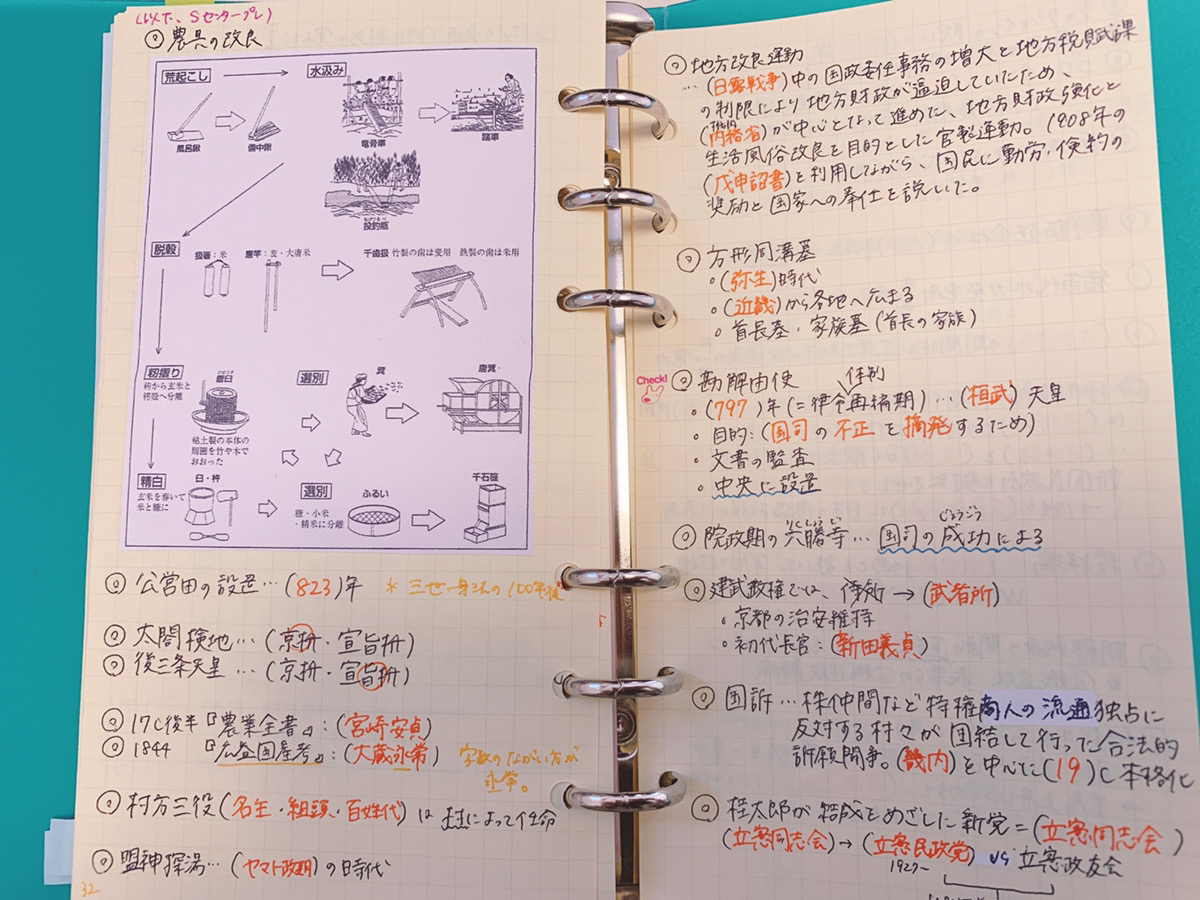 (以下、Sセンタープレ)
農具の改良
荒起こし
水汲み
風呂鍬
備中鍬
竜骨車
踏車
投釣瓶
脱穀
扱箸:米
唐竿:麦・大唐米
千歯扱 竹製の歯は麦用 鉄製の歯は米用
籾摺り
籾から玄米と
籾殻へ分離
磨臼
粘土製の本体の
周囲を竹や木で
おおった
選別
箕
唐箕
精白
玄米を舂いて
米と糠に
臼・杵
選別
糠・小米
・精米に分離
ふるい
千石簁
公営田の設置…(823)年 *三世一身法の100年後
太閤検地…(京枡・宣旨枡)
後三条天皇…(京枡・宣旨枡)
17C後半『農業全書』:(宮崎安貞)
1844 『広益国産考』:(大蔵永常)
字数のながい方が
永常。
村方三役(名主・組頭・百姓代)は によって任命
盟神探湯…(ヤマト政権)の時代
32
地方改良運動
…(日露戦争)中の国政委任事務の増大と地方税賦課
の制限により地方財政が逼迫していたため、
(内務省)が中心となって進めた、地方財政強化と
生活風俗改良を目的とした官製運動。1908年の
(戊申詔書)を利用しながら、国民に勤労・倹約の
奨励と国家への奉仕を説いた。
方形周溝墓
・(弥生)時代
・(近畿)から各地へ広まる
・首長墓・家族墓(首長の家族)
Check!
勘解由使
体制
・(797)年(=律令再編期)…(桓武)天皇
・目的:(国司の不正を摘発するため)
・文書の監査
・中央に設置
院政期の六勝寺…国司の成功による
りくしょうじ
じょうごう
建武政権では、侍所→(武者所)
・京都の治安維持
・初代長官:(新田義貞)
国訴…株仲間など特権商人の流通独占に
反対する村々が団結して行った合法的
訴願闘争。(畿内)を中心に(19)C本格化
桂太郎が結成をめざした新党=(立憲同志会)
(立憲同志会)→(立憲民政党) VS 立憲政友会
1927~